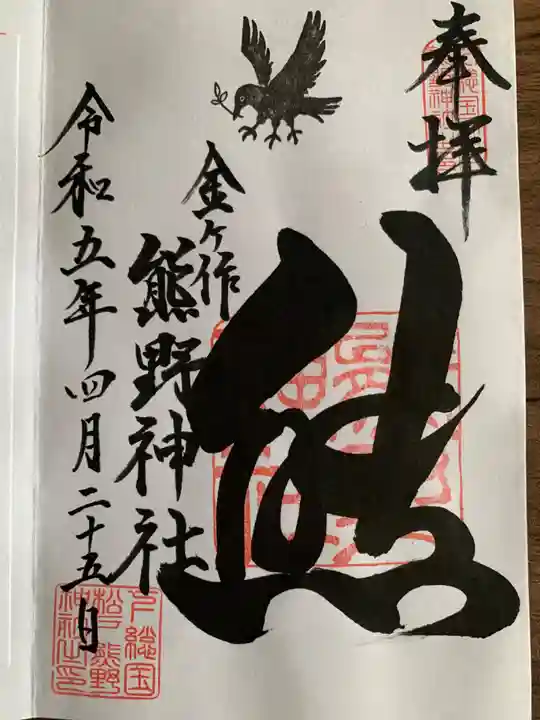 奉拝
熊
金ヶ作
熊野神社
令和五年四月二十五日
下総国
松戸熊野
神社之印